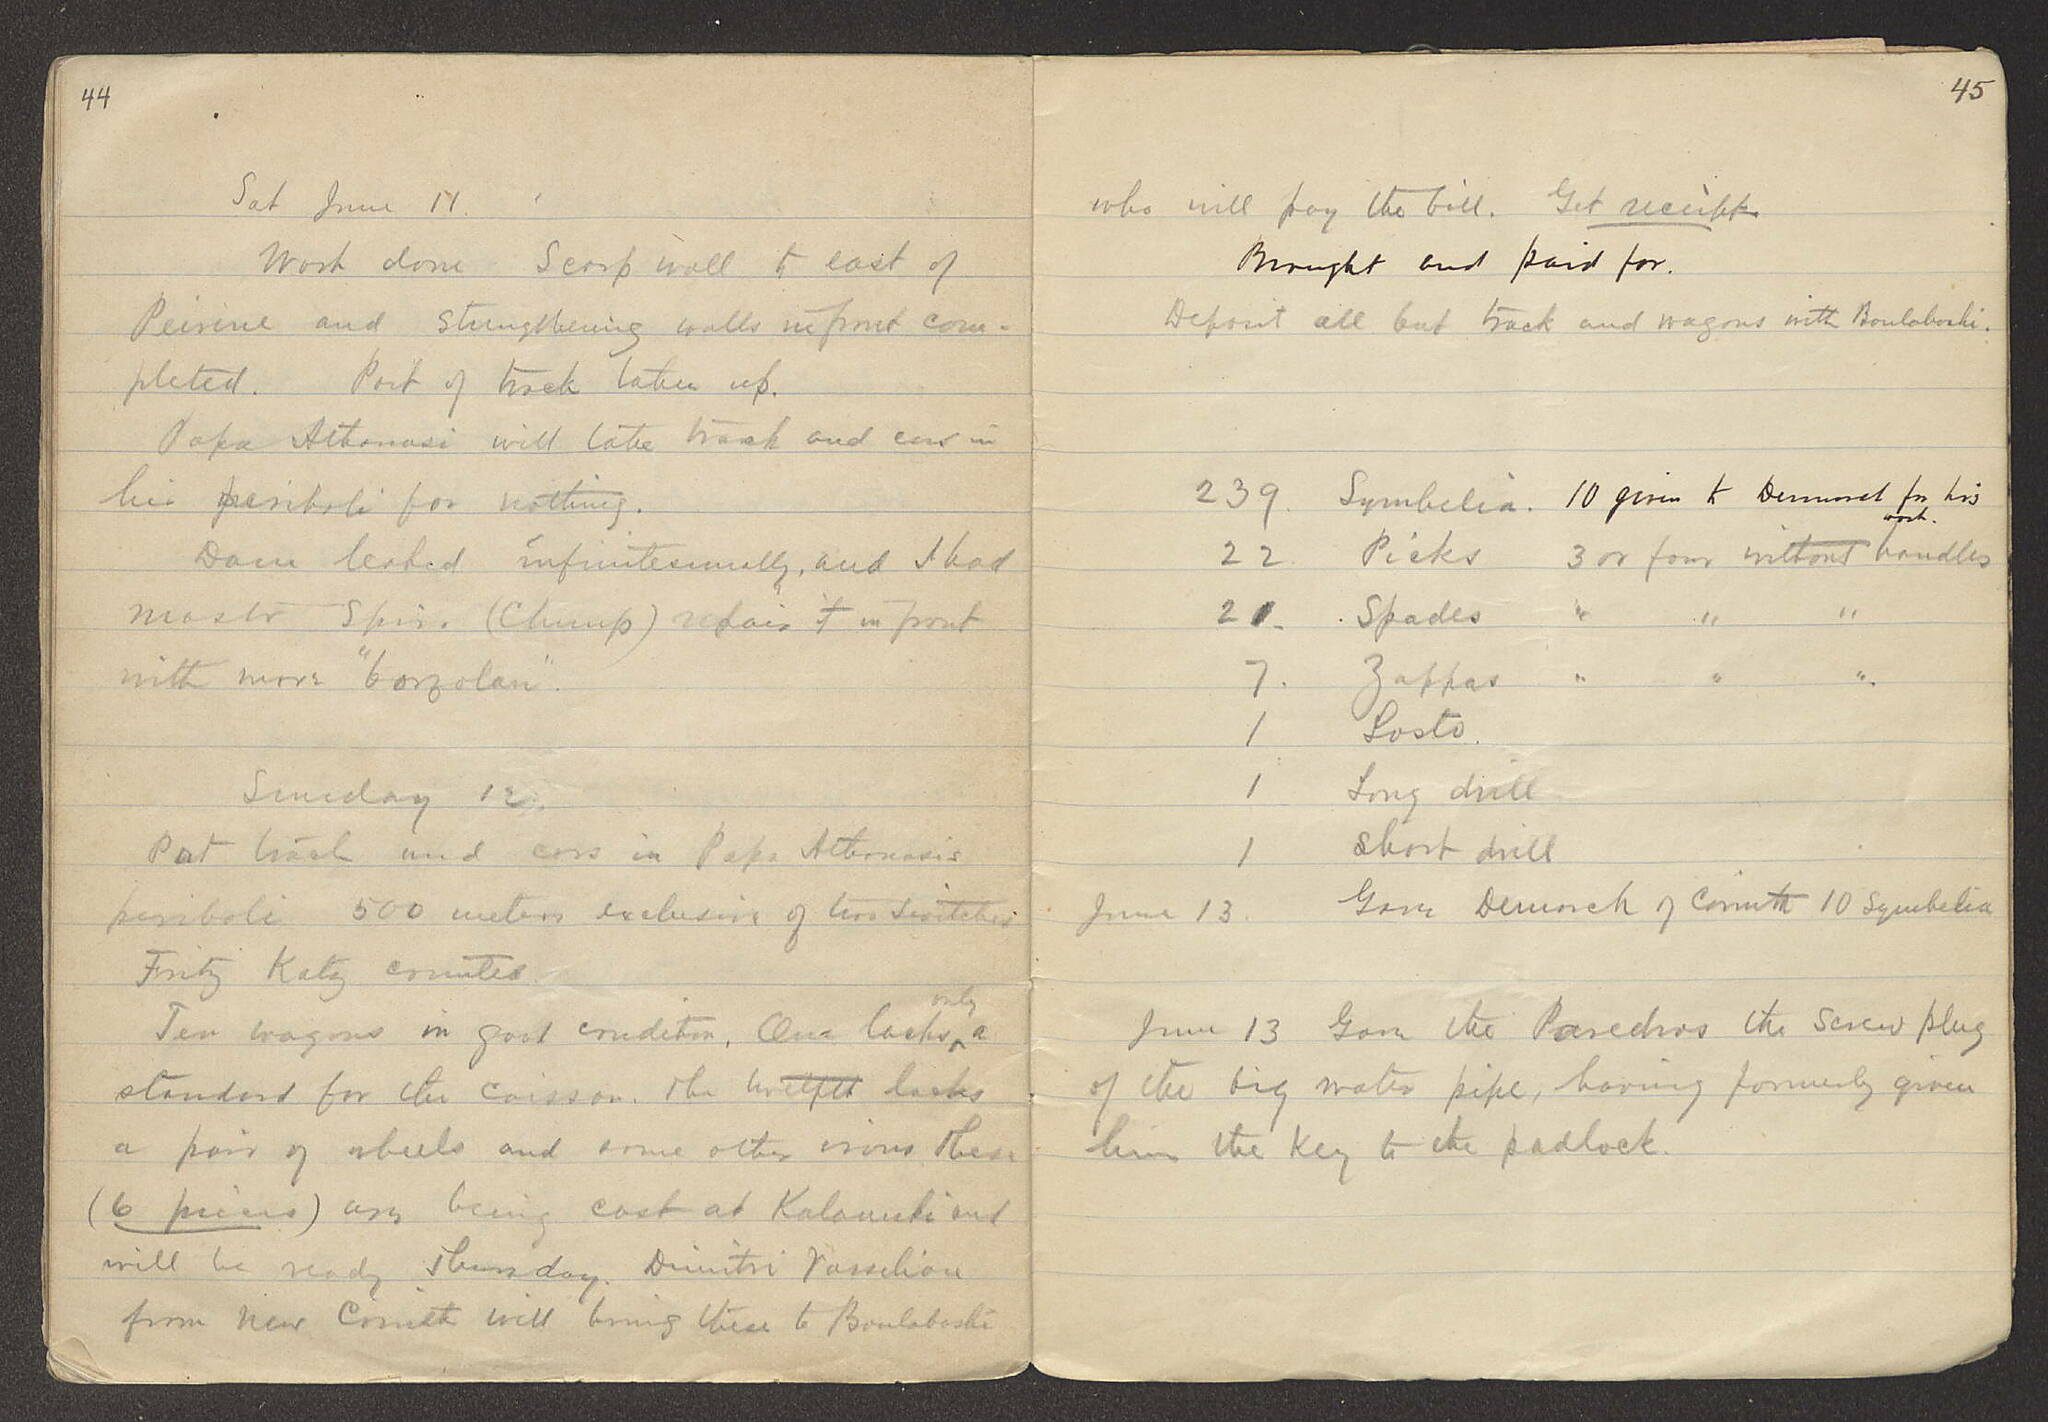 44
Sat June 11.
Work done Scarp wall to east of
Peirene and strengthening walls in front com-
pleted. Part of track taken up.
Papa Athanasi will take track and cars in
his periboli for nothing.
Dam leaked infinitesimally, and I had
master Spir. (Chump) repair it in front
with more "borzolan".
Sunday 12.
Put track and cars in Papa Athanasis
periboli 500 meters exclusive of two switches
Fritz Katz counted
Ten wagons in good condition. One lacks only a
standard for the caisson. The twelfth lacks
a pair of wheels and some other irons These
(6 pieces) are being cast at Kalamaki and
will be ready Thursday. Dimitri Vassiliou
from New Corinth will bring these to Boulaboshi
45
who will pay the bill. Get receipt.
Brought and paid for.
Deposit all but track and wagons with Boulaboshi.
239. Symbelia. 10 given to Demarch for his work.
22 Picks 3 or four without handles
21. Spades " " "
7. Zappas " " "
1 Losto.
1 Long drill
1 Short drill
June 13. Gave Demarch of Corinth 10 Symbelia
June 13 Gave the Paredros the screw plug
of the big water pipe, having formerly given
him the key to the padlock.